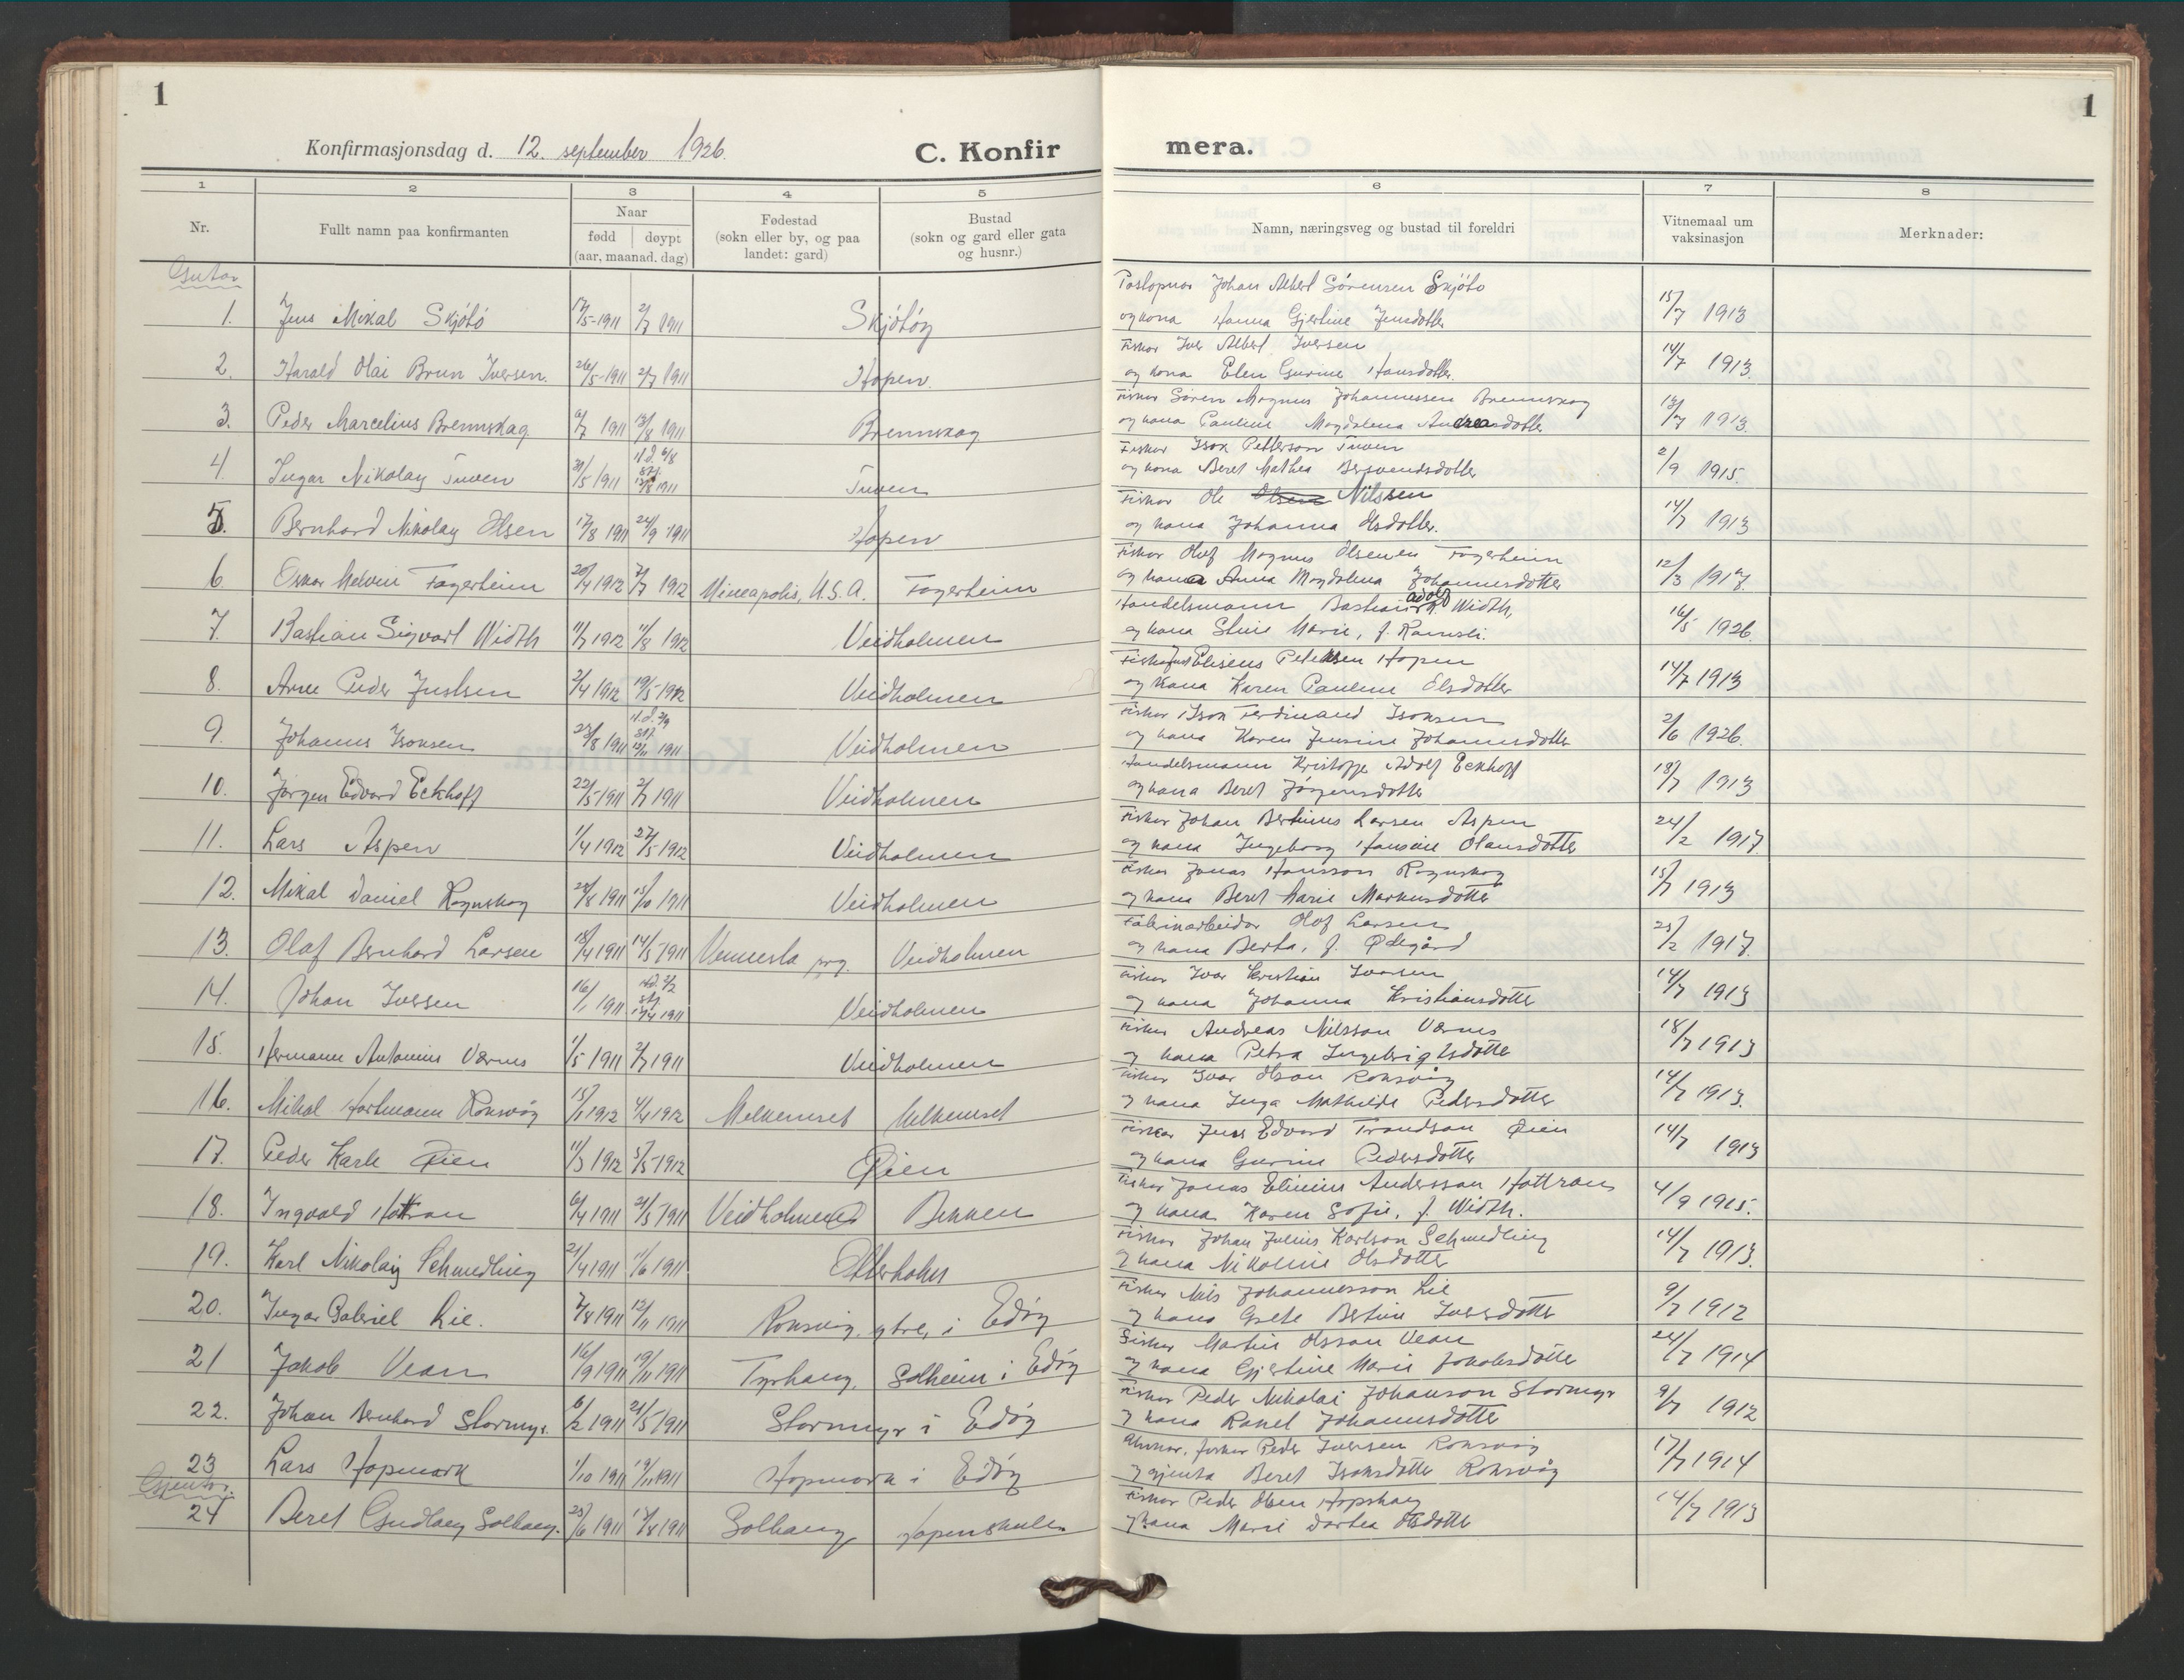 1
1
Konfirmasjonsdag d. 12. september 1926.
C. Konfir
mera.
1 2 3 4 5 6 7 8
Nr.
Fullt namn paa konfirmanten
Naar
fødd døypt
(aar, maanad, dag)
Fødestad
(sokn eller by, og paa
landet: gard)
Bustad
(sokn og gard eller gata
og husnr.)
Namn, næringsveg og bustad til foreldri
Vitnemaal um
vaksinasjon
Merknader:
Gutar
1. Jens Mikal Skjötö 17/5-1911 2/7 1911 Skjötöy Johan Albert Sörensen Skjötö
og kona Hanna Gjertine Jensdotter 15/7 1913
2. Harald Olai Brun Iversen. 26/5-1911 2/7 1911 Hopen. Fiskar Iver Albert Iversen
og kona Elen Gurine Hansdotter. 14/7 1913.
3. Peder Marcelius Brennskag 6/7 1911 13/8 1911 Brennskag Fiskar Sören Magnus Johannessen Brennskag
og kona Pauline Magdalena Andreasdotter 1913.
4. Ingar Nikolay Tuven 30/5 1911 H.d. 6/8
stf.
13/8 1911 Tuven Fiskar Isak Petterson Tuven
og kona Beret Mathea Bersvendsdotter 2/9 1915.
5. Bernhard Nikolay Olsen 17/8 1911 24/9 1911 Hopen Fiskar Ole Olsen Nilssen
og kona Johanna Olsdotter. 14/7 1913
6 Oskar Melvin Fagerheim 20/4 1912 7/7 1912 Mineapolis, U.S.A. Fagerheim Fiskar Olof Magnus Olsen Fagerheim
og kona Anna Magdalena Johannesdotter 12/3 1917.
7. Bastian Sigvart Width 11/7 1912 11/8 1912 Veidholmen Handelsmann Bastian Adolf Width,
og kona Stine Marie, f. Ramsli. 16/5 1926.
8. Arne Peder Justsen 2/4 1912 19/5-1912 Veidholmen Fiskar Just Elisens Petersen Hopen
og kona Karen Pauline Olsdotter 14/7 1913
9. Johannes Isaksen 27/8 1911 H.d. 3/9
stf.
12/11 1911 Veidholmen Fiskar Isak Ferdinand Isaksen
og kona Karen Jensine Johannesdotter 2/6 1926.
10. Jørgen Edvard Eckhoff 22/5-1911 2/7 1911 Veidholmen Handelsmann Kristoffer Adolf Eckhoff
og kona Beret Jörgensdotter 18/7 1913
11. Lars Aspen 1/4 1912 27/5-1912 Veidholmen Fiskar Johan Bertinus Larsen Aspen
og kona Ingeborg Hansine Olausdotter 24/2 1917.
12. Mikal Daniel Rognskog 1911 15/10 1911 Veidholmen Fiskar Jonas Hansson Rognskog
og kona Beret Marie Markusdotter 15/7 1913
13. Olaf Bernhard Larsen 18/4 1911 14/5-1911 Vennesla prg. Veidholmen Fabrikarbeidar Olaf Larsen
og kona Berta, f. Ødegård 1917.
14. Johan Iversen 16/1 1911 H.d.
stf.
1911 Veidholmen Fiskar Ivar Kristian Ivarsen
og kona Johanna Kristiansdotter 14/7 1913
15. Hermann Antonius Værnes 1/5 1911 2/7 1911 Veidholmen Fiskar Andreas Nilsson Værnes
og kona Petra Ingebrigtsdotter 18/7 1913
16. Mikal Hartmann Ronsvåg 15/1 1912 4/4 1912 Melkemset Melkemset Fiskar Ivar Olson Ronsvåg
og kona Inga Mathilde Pedersdotter 14/7 1913.
17. Peder Karle Øien 11/3 1912 5/5-1912 Øien Fiskar Jens Edvard Trondson Øien
og kona Gurine Pedersdotter 14/7 1913
18. Ingvald Hattran 6/4 1911 21/5 1911 Veidholmen Bekken Fiskar Jonas Elinius Andersson Hattran
og kona Karen Sofie, f. Width. 4/9 1915.
19. Karl Nikolay Schmedling 21/4 1911 11/6 1911 Otterholm Fiskar Johan Julius Karlson Schmedling
og kona Nikoline Olsdotter 14/7 1913.
20. Ingar Gabriel Lie. 7/8 1911 12/11 1911 Ronsvåg ytre, i Edöy Fiskar Nils Johannesson Lie
og kona Grete Bertine Iversdotter 9/7 1912
21 Jakob Vean 16/9 1911 19/11 1911 Tyrhaug. Solheim i Edöy Fiskar Martin Olsson Vean
og kona Gjertine Marie Jakobsdotter 24/7 1914
22. Johan Bernhard Stormyr. 6/2 1911 21/5 1911 Stormyr i Edöy Fiskar Peder Nikolai Johanson Stormyr
og kona Rakel Johannesdotter 9/7 1912
23 Lars Hopmark 1/10 1911 19/11 1911 Hopmark i Edöy Peder Iversen Ronsvåg
og gjenta Beret Isaksdotter Ronsvåg 17/7 1914
Gjentor.
24 Beret Gudlaug Solhaug. 25/6 1911 13/8 1911 Solhaug Fiskar Peder Olsen Hopshaug
og kona Marie Dortea Olsdotter 14/7 1913